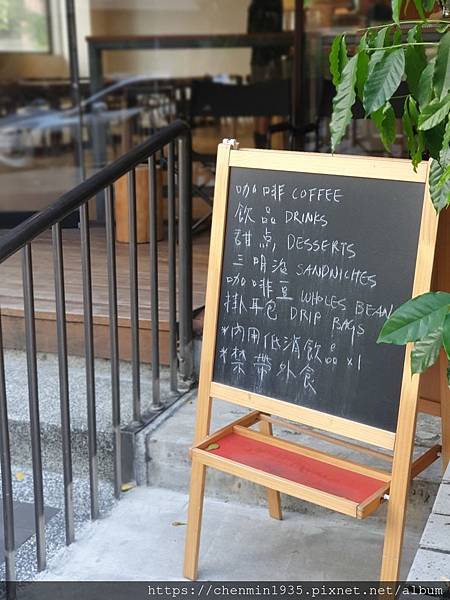 咖啡 COFFEE
飲品 DRINKS
甜點 DESSERTS
三明治 SANDNICHES
咖啡豆 WHOLES BEAN
掛耳包 DRIP BAGS
*內用低消飲品x1
*禁帶外食
https://chenmin1935.pixnet.net/album